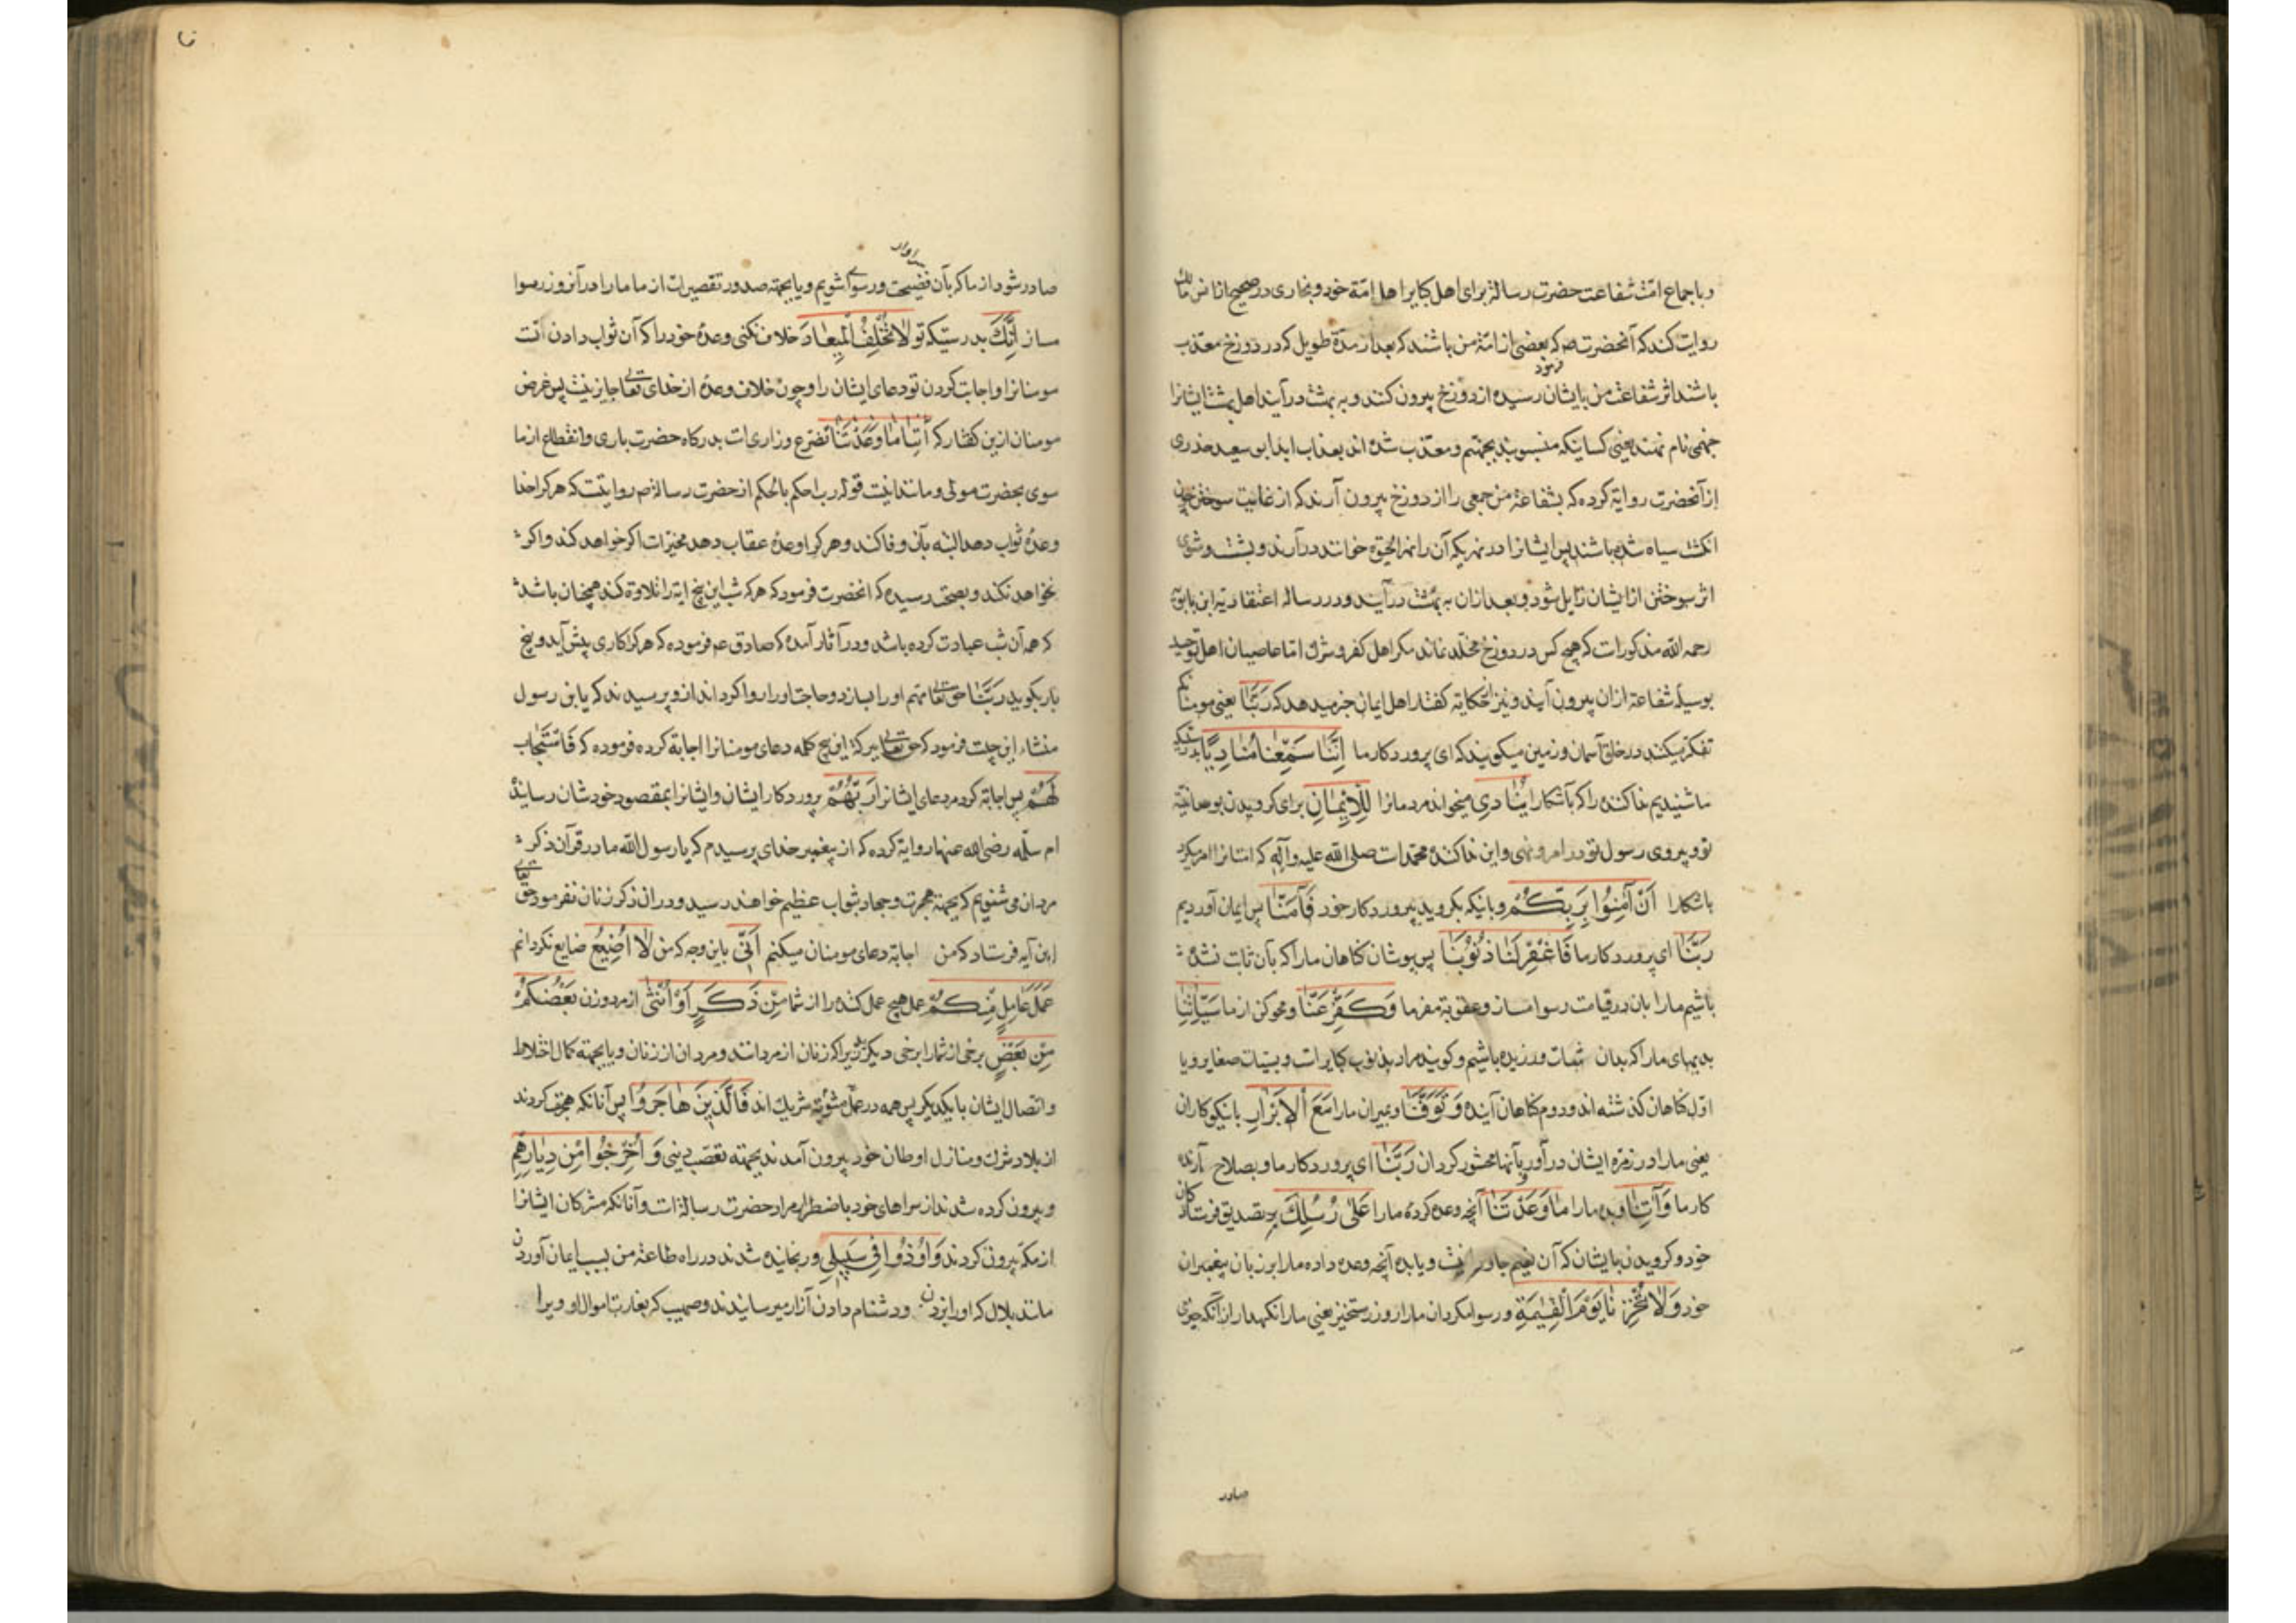 و باجماع امّت شفاعت حضرت رسالة برای اهل کبایر اهل امّة خود و بخاری در صحیح از انس مالک
روایت کند که آنحضرت صم که بعضی از امّة من باشند که بعد از مدّة طویل که در دوزخ معذّب
فرمود
باشند اثر شفاعت من بایشان رسیده از دوزخ بیرون کنند و به بهشت در آیند اهل بهشت ایشانرا
جهنمی نام نهند یعنی کسانیکه منسوبند بجهنّم و معذّب شده اند بعذاب ابدا بو سعید خدری
از آنحضرت روایة کرده که بشفاعة من جمعی را از دوزخ بیرون آرند که از غایت سوختن چون
انکشت سیاه شده باشند پس ایشانرا در نهریکه آن را نهر الحیوة خوانند در آرند و بشست و شوی
اثر سوختن از ایشان زایل شود و بعد ازان به بهشت در آیند و در رساله اعتقادیه ابن بابویه
رحمه الله مذکورات که هیچ کس در دوزخ مخلّد نماند مکر اهل کفر و شرک امّا عاصیان اهل توحید
بوسیله شفاعة ازان بیرون آیند و نیز حکایه کفتار اهل ایمان خبر میدهد که رَبَّنَا یعنی مومنانکه
تفکّر میکنند در خلق آسمان و زمین میکویند که ای پروردکار ما اِنَّنَا سَمِعْنَا مُنَادِیًا بدرستیکه
ما شنیدیم نداکننده را که بآشکارا یُنَادِی میخواند مردمانرا لِلْاِیْمَانِ برای کرویدن بوحدانیّة
تو و پیروی رسول تو در امر و نهی و این نداکننده محمّدات صلی الله علیه و آله که امتانرا امر میکرد
باشکارا اَنْ آمِنُوا بِرَبِّکُمْ و بانیکه بکروید بپروردکار خود فَآمَنَّا پس ایمان آوردیم
رَبَّنَا ای پروردکار ما فَاغْفِرْ لَنَا ذُنُوبَنَا پس بپوشان کناهان ما را که بآن ثابت نشده
باشیم ما را بان در قیامت رسوا مساز و عقوبة مفرما وَ کَفِّرْ عَنَّا و محو کن از ما سَیِّاٰتِنَا
بدیهای ما را که بدان ورزیده باشیم و کویند مراد بذنوب کبایرات و بسیئات صغایر و یا
اوّل کناهان کذشته اند و دوم کناهان آینده وَ تَوَفَّنَا و بمیران ما را مَعَ الْاَبْرَارِ بانیکوکاران
یعنی ما را در زمره ایشان در آور و بآنها محشور کردان رَبَّنَا ای پروردکار ما و بصلاح آرنده
کار ما وَآتِنَا و بده ما را مَا وَعَدْتَنَا آنچه وعده کرده ما را عَلٰی رُسُلِکَ بر تصدیق فرستادکان
خود و کرویدن بایشان که آن نعیم جاودانیست و یا بده آنچه وعده داده ما را بر زبان پیغمبران
خود وَلَا تُخْزِنَا یَوْمَ الْقِیٰمَةِ و رسوا مکردان ما را روز رستخیز یعنی ما را نکهدار از آنکه چیزی
صادر
صادر شود از ما که بآن فضیحت و رسوا شویم و یا بجهتة صدور تقصیرات از ما ما را در آنروز رسوا
مساز اِنَّکَ بدرستیکه تو لَا تُخْلِفُ الْمِیعَادَ خلاف نکنی وعدهٔ خود را که آن ثواب دادن است
مومنانرا و اجابت کردن تو دعای ایشان را و چون خلاف وعده از خدای تعالی جایز نیست پس غرض
مومنان ازین کفتار که آتِنَا مَا وَعَدْتَنَا تضرّع و زاری ات بدرکاه حضرت باری و انقطاع از ما
سوی بحضرت مولی و مانند اینست قوله رب احکم بالحکم از حضرت رسالة صم روایتست که هر کرا خدا
وعدهٔ ثواب دهد البته بآن وفا کند و هر کرا وعدهٔ عقاب دهد مخیّرات اکر خواهد کند و اکر
نخواهد نکند و بصحّت رسیده که انحضرت فرمود که هر که شب این پنج ایة را تلاوة کند همچنان باشد
که همه آن شب عبادت کرده باشد و در آثار آمده که صادق عم فرموده که هر کرا کاری پیش آید و پنج
بار بکوید رَبَّنَا حق تعالی مهم او را بسازد و حاجت او را روا کرداند از و پرسیدند که یابن رسول
منشاء این چیست فرمود که حق تعالی ببرکة این پنج کلمه دعای مومنانرا اجابة کرده فرموده که فَاسْتَجَابَ
لَهُمْ پس اجابة کرد مر دعای ایشانرا رَبُّهُمْ پروردکار ایشان و ایشانرا بمقصود خودشان رسانید
ام سلّمه رضی الله عنها روایة کرده که از پیغمبر خدای پرسیدم که یا رسول الله ما در قرآن ذکر
مردان می شنویم که بجهتة هجرت و جهاد بثواب عظیم خواهند رسید و دران ذکر زنان نفرمود حق تعالی
این آیه فرستاد که من اجابة دعای مومنان میکنم اَنِّی باین وجه که من لَا اُضِیعُ ضایع نکردانم
عَمَلَ عَامِلٍ مِنْکُمْ عمل هیچ عمل کننده را از شما مِنْ ذَکَرٍ اَوْ اُنْثٰی از مرد و زن بَعْضُکُمْ
مِنْ بَعْضٍ برخی از شما از برخی دیکرید زیرا که زنان از مردانند و مردان از زنان و یا بجهتة کمال اختلاط
و اتصال ایشان بایکدیکر پس همه در عمل مثوبة شریک اند فَالَّذِینَ هَاجَرُوا پس آنانکه هجرت کردند
از بلاد شرک و منازل اوطان خود بیرون آمدند بجهتة تعصّب دینی وَاُخْرِجُوا مِنْ دِیَارِهِمْ
و بیرون کرده شدند از سراهای خود باضطرار مراد حضرت رسالة ات و آنانکه مشرکان ایشانرا
از مکه بیرون کردند وَاُوذُوا فِی سَبِیلِی و رنجانیده شدند در راه طاعة من بسبب ایمان آوردن
مانند بلال که او را بزدن و دشنام دادن آزار میرسانیدند و صهیب که بغارت اموال او ویرا